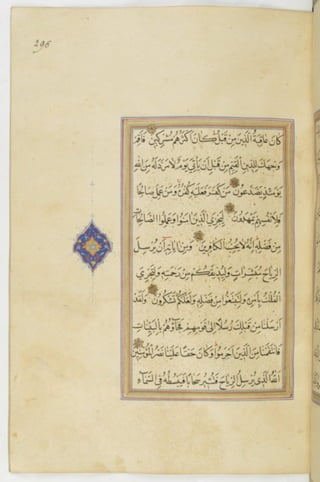 295
كَانَ عَاقِبَةُ الَّذِينَ مِنْ قَبْلُ كَانَ أَكْثَرُهُمْ مُشْرِكِينَ فَأَقِمْ
وَجْهَكَ لِلدِّينِ الْقَيِّمِ مِنْ قَبْلِ أَنْ يَأْتِيَ يَوْمٌ لَا مَرَدَّ لَهُ مِنَ اللَّهِ
يَوْمَئِذٍ يَصَّدَّعُونَ مَنْ كَفَرَ فَعَلَيْهِ كُفْرُهُ وَمَنْ عَمِلَ صَالِحًا
فَلِأَنْفُسِهِمْ يَمْهَدُونَ لِيَجْزِيَ الَّذِينَ آمَنُوا وَعَمِلُوا الصَّالِحَاتِ
مِنْ فَضْلِهِ إِنَّهُ لَا يُحِبُّ الْكَافِرِينَ وَمِنْ آيَاتِهِ أَنْ يُرْسِلَ
الرِّيَاحَ مُبَشِّرَاتٍ وَلِيُذِيقَكُمْ مِنْ رَحْمَتِهِ وَلِتَجْرِيَ
الْفُلْكُ بِأَمْرِهِ وَلِتَبْتَغُوا مِنْ فَضْلِهِ وَلَعَلَّكُمْ تَشْكُرُونَ وَلَقَدْ
أَرْسَلْنَا مِنْ قَبْلِكَ رُسُلًا إِلَى قَوْمِهِمْ فَجَاؤُهُمْ بِالْبَيِّنَاتِ
فَانْتَقَمْنَا مِنَ الَّذِينَ أَجْرَمُوا وَكَانَ حَقًّا عَلَيْنَا نَصْرُ الْمُؤْمِنِينَ
اللَّهُ الَّذِي يُرْسِلُ الرِّيَاحَ فَتُثِيرُ سَحَابًا فَيَبْسُطُهُ فِي السَّمَاءِ